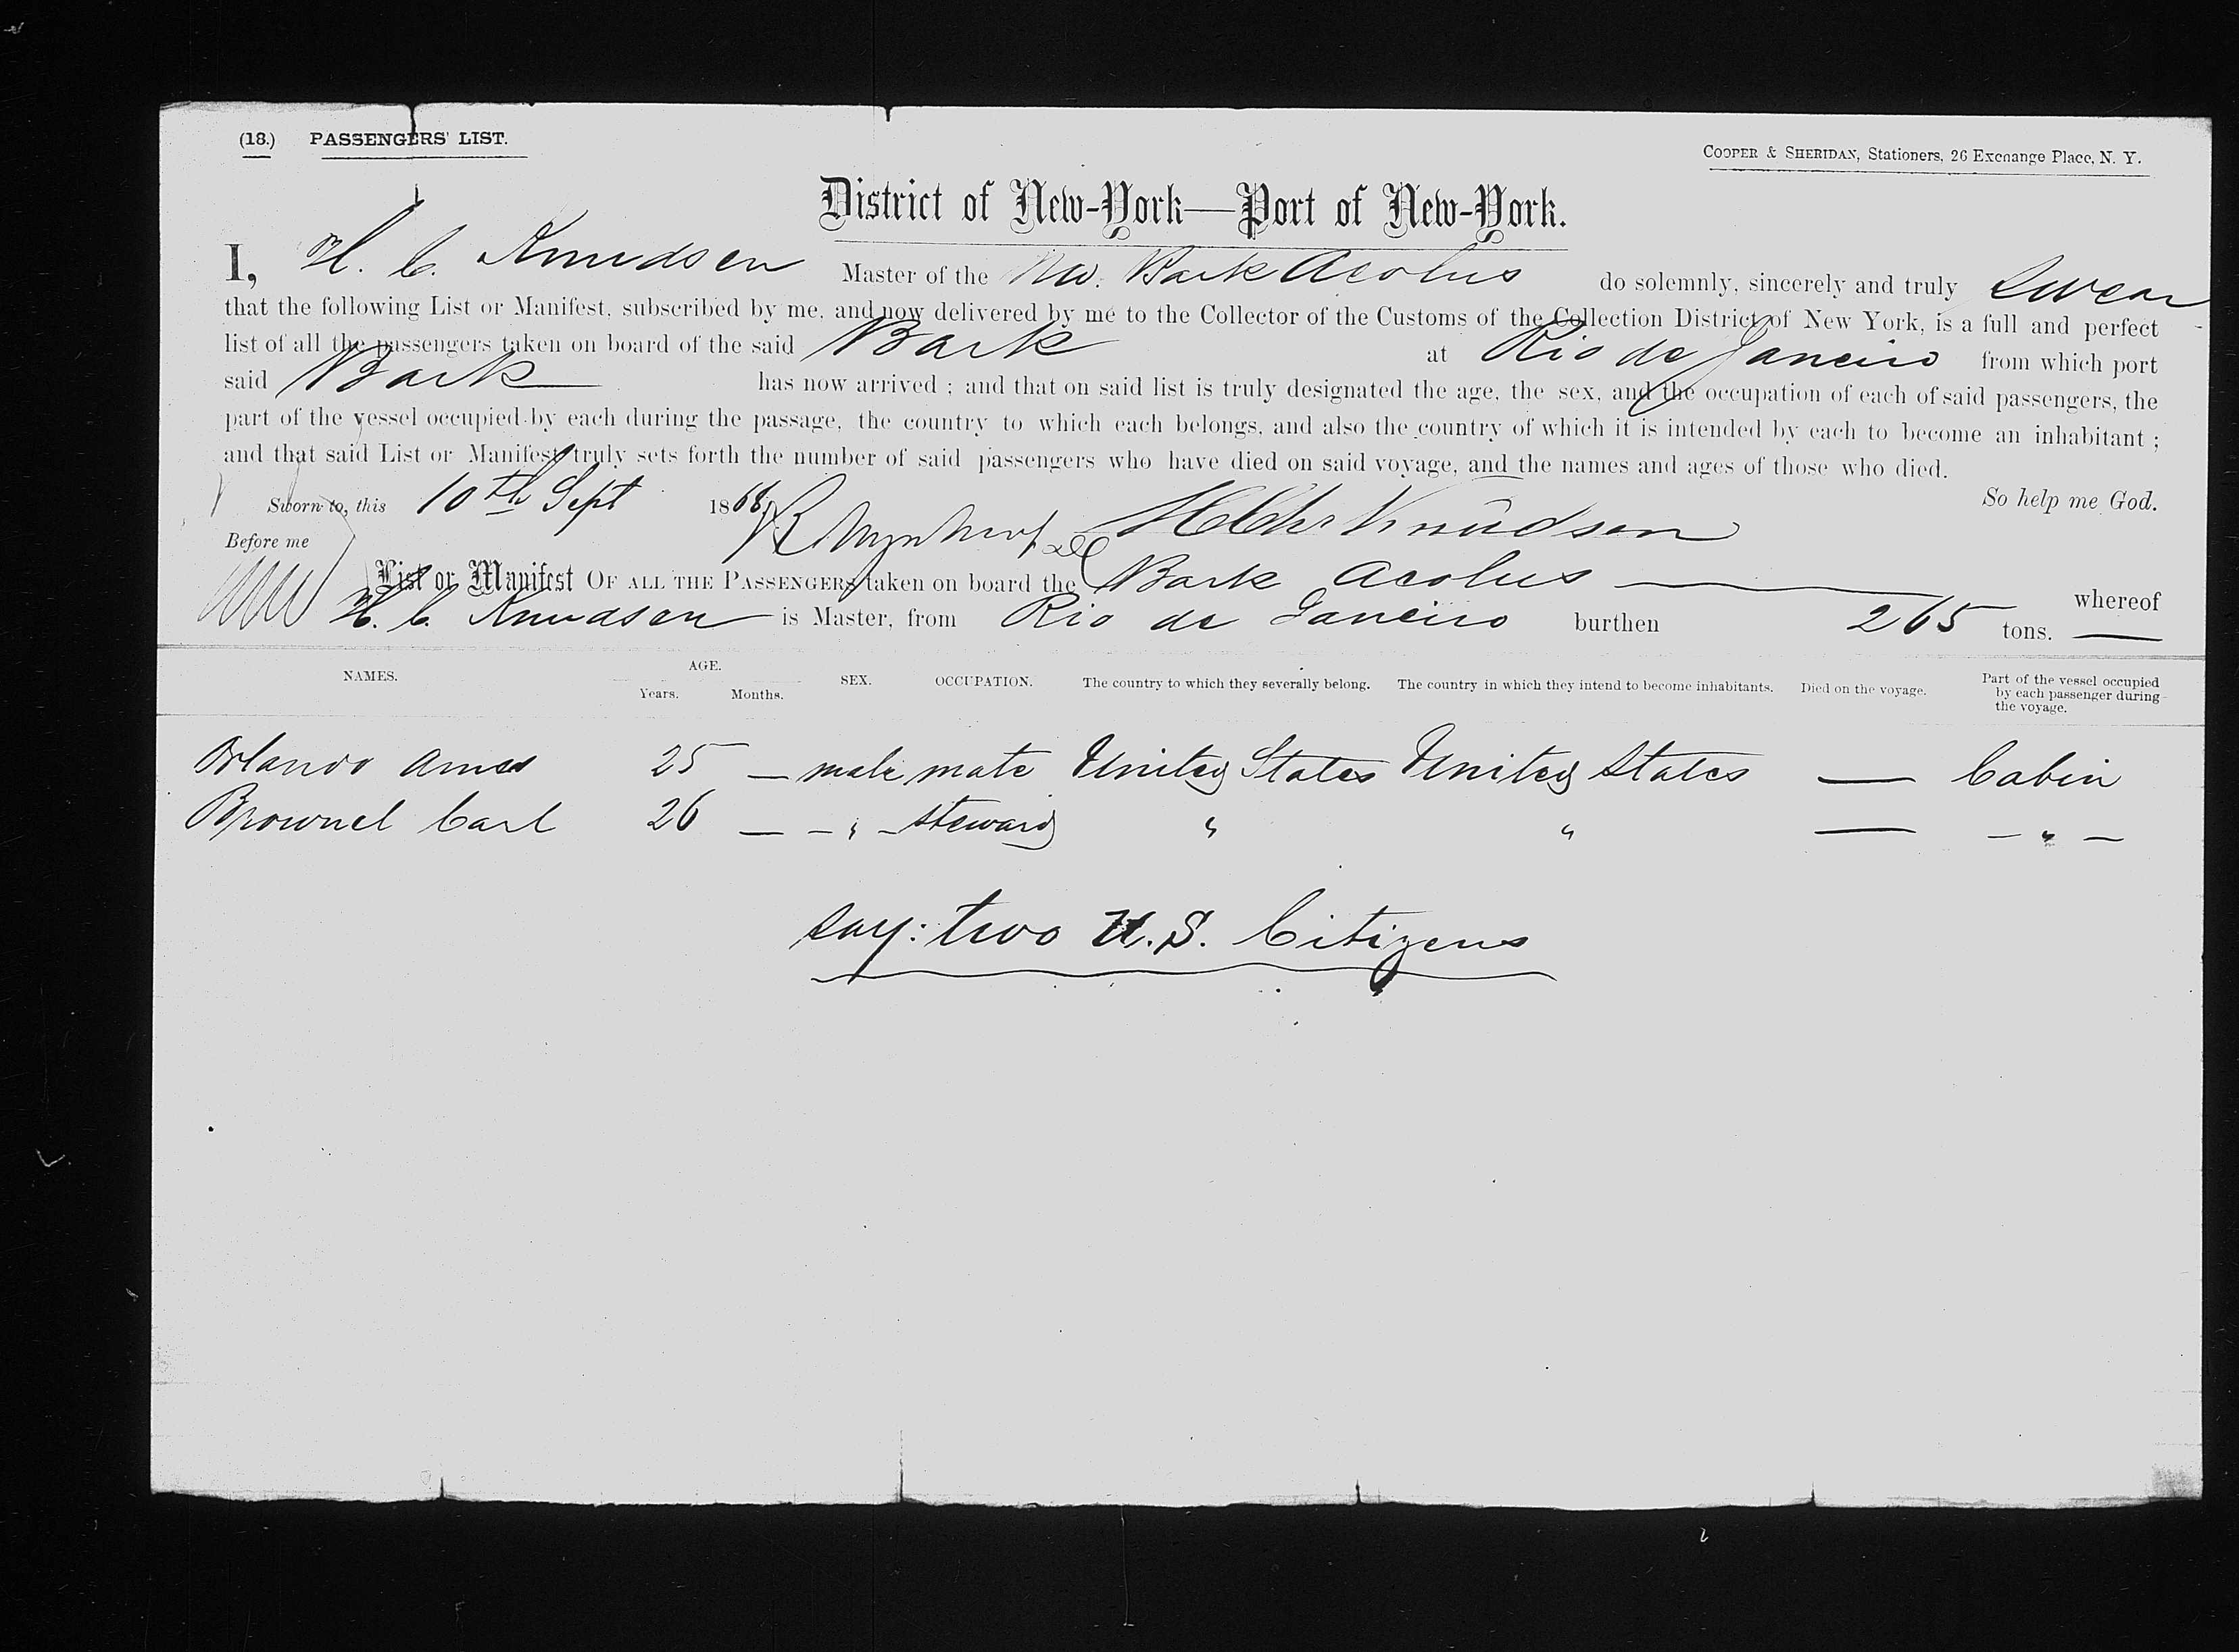 (18.) PASSENGERS' LIST.
COOPER & SHERIDAN, Stationers, 26 Exchange Place, N. Y.
District of New-York—Port of New-York.
I, H. C. Knudsen Master of the Nw. Bark Aeolus do solemnly, sincerely and truly swear
that the following List or Manifest, subscribed by me, and now delivered by me to the Collector of the Customs of the Collection District of New York, is a full and perfect
list of all the passengers taken on board of the said Bark at Rio de Janeiro from which port
said Bark has now arrived; and that on said list is truly designated the age, the sex, and the occupation of each of said passengers, the
part of the vessel occupied by each during the passage, the country to which each belongs, and also the country of which it is intended by each to become an inhabitant;
and that said List or Manifest truly sets forth the number of said passengers who have died on said voyage, and the names and ages of those who died.
So help me God.
Sworn to, this 10th Sept 1868
Knudsen
Before me
List or Manifest OF ALL THE PASSENGERS taken on board the Bark Aeolus whereof
H. C. Knudsen is Master, from Rio de Janeiro burthen 265 tons.
NAMES. AGE. Years. Months. SEX. OCCUPATION. The country to which they severally belong. The country in which they intend to become inhabitants. Died on the voyage. Part of the vessel occupied by each passenger during the voyage.
Orlando Ames 25 — male mate United States United States — Cabin
Brownel Carl 26 — — " — steward " " — — " —
say: two U.S. Citizens